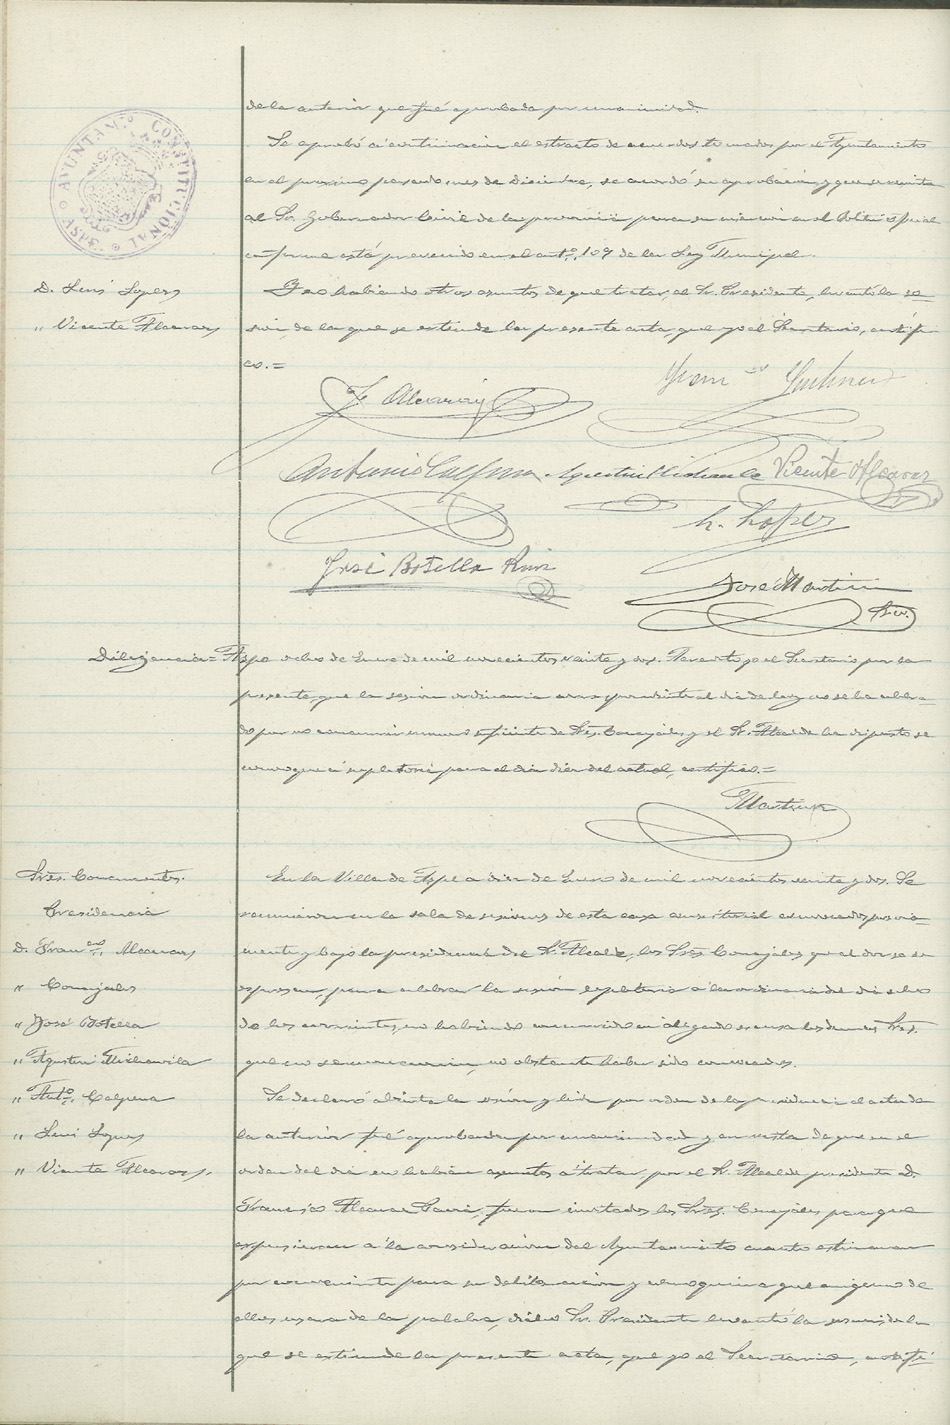 AYUNTAM.º CONSTITUCIONAL ASPE
de la anterior que fué aprobada por unanimidad.
Se aprobó á continuacion el extracto de acuerdos tomados por el Ayuntamiento
en el proximo pasado mes de Diciembre, se acordó su aprobación y que se remita
al Sr. Gobernador Civil de la provincia para su insercion en el Boletin oficial
conforme está prevenido en el artº. 109 de la Ley Municipal.
D. Luis Lopez
" Vicente Alcaraz
Y no habiendo otros asuntos de que tratar, el Sr. Presidente, levantó la se-
sión de la que se extiende la presente acta, que yo el Secretario, certifi-
co.=
F. Alcaraz
Antonio Calpena
Vicente Alcaraz
L. Lopez
José Botella Ruiz
José Martin
Srio.
Diligencia = Aspe ocho de Enero de mil novecientos veinte y dos. Yo el Secretario por la
presente, que la sesión ordinaria correspondiente al dia de hoy no se ha celebra-
do por no concurrir numero suficiente de Sres. Concejales y el Sr. Alcalde ha dispuesto se
convoque á supletoria para el dia diez del actual, certifico.=
Martin
Sres. Concurrentes.
Presidencia
D. Franco. Alcaraz
" Concejales
" José Botella
" Agustin Mirambell
" Antº. Calpena
" Luis Lopez
" Vicente Alcaraz
En la Villa de Aspe a diez de Enero de mil novecientos veinte y dos. Se
reunieron en la sala de sesiones de esta casa consistorial convocados previa-
mente y bajo la presidencia del Sr. Alcalde, los Sres. Concejales que al dorso se
expresan, para celebrar la sesión supletoria a la ordinaria del dia ocho
de los corrientes, no habiendo concurrido ni alegado excusa los demas Sres.
que no se mencionan, no obstante haber sido convocados.
Se declaró abierta la sesión y leida por orden de la presidencia el acta de
la anterior fué aprobada por unanimidad y en vista de que en el
orden del dia no habian asuntos á tratar, por el Sr. Alcalde presidente D.
Francisco Alcaraz fueron invitados los Sres. Concejales para que
expusieran á la consideración del Ayuntamiento cuanto estimaran
por conveniente para su deliberacion y como quiera que ninguno de
ellos usara de la palabra, dicho Sr. Presidente levantó la sesión de la
que se extiende la presente acta, que yo el Secretario, certifi-